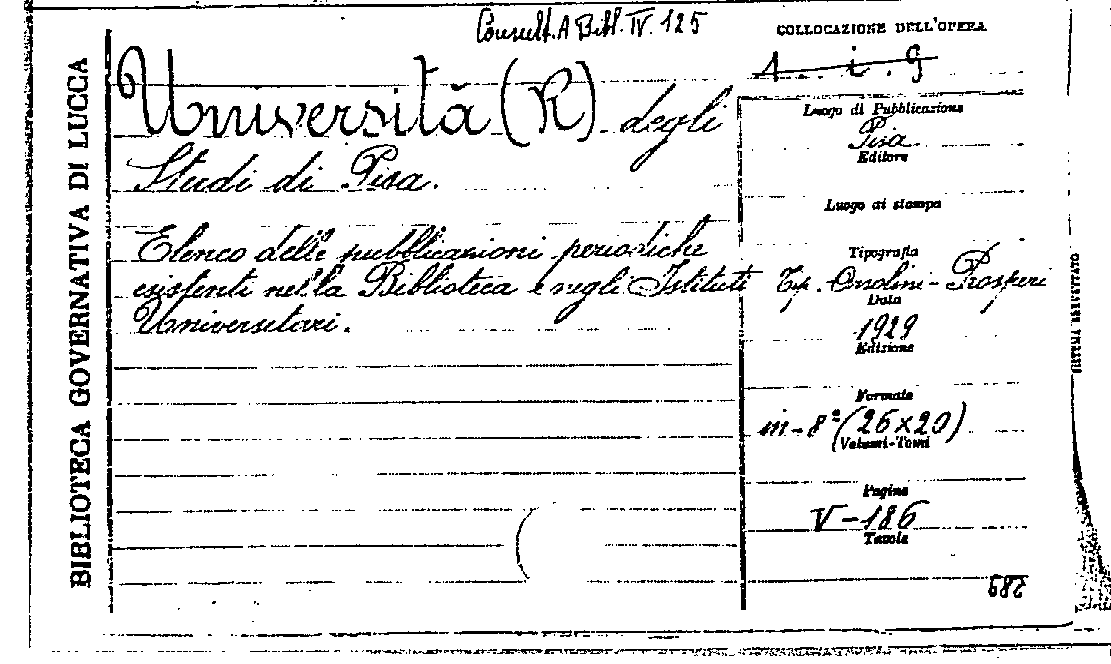 Consult. A Bibl. IV. 125
COLLOCAZIONE DELL'OPERA
1. i. 9
BIBLIOTECA GOVERNATIVA DI LUCCA
Università (R) degli
Studi di Pisa.
Elenco delle pubblicazioni periodiche
esistenti nella Biblioteca e negli Istituti
Universitari.
Luogo di Pubblicazione
Pisa
Editore
Luogo di stampa
Tipografia
Tip. Orsolini-Prosperi
Data
1929
Edizione
Formato
in-8° (26x20)
Volumi-Tomi
Pagine
V-186
Tavole